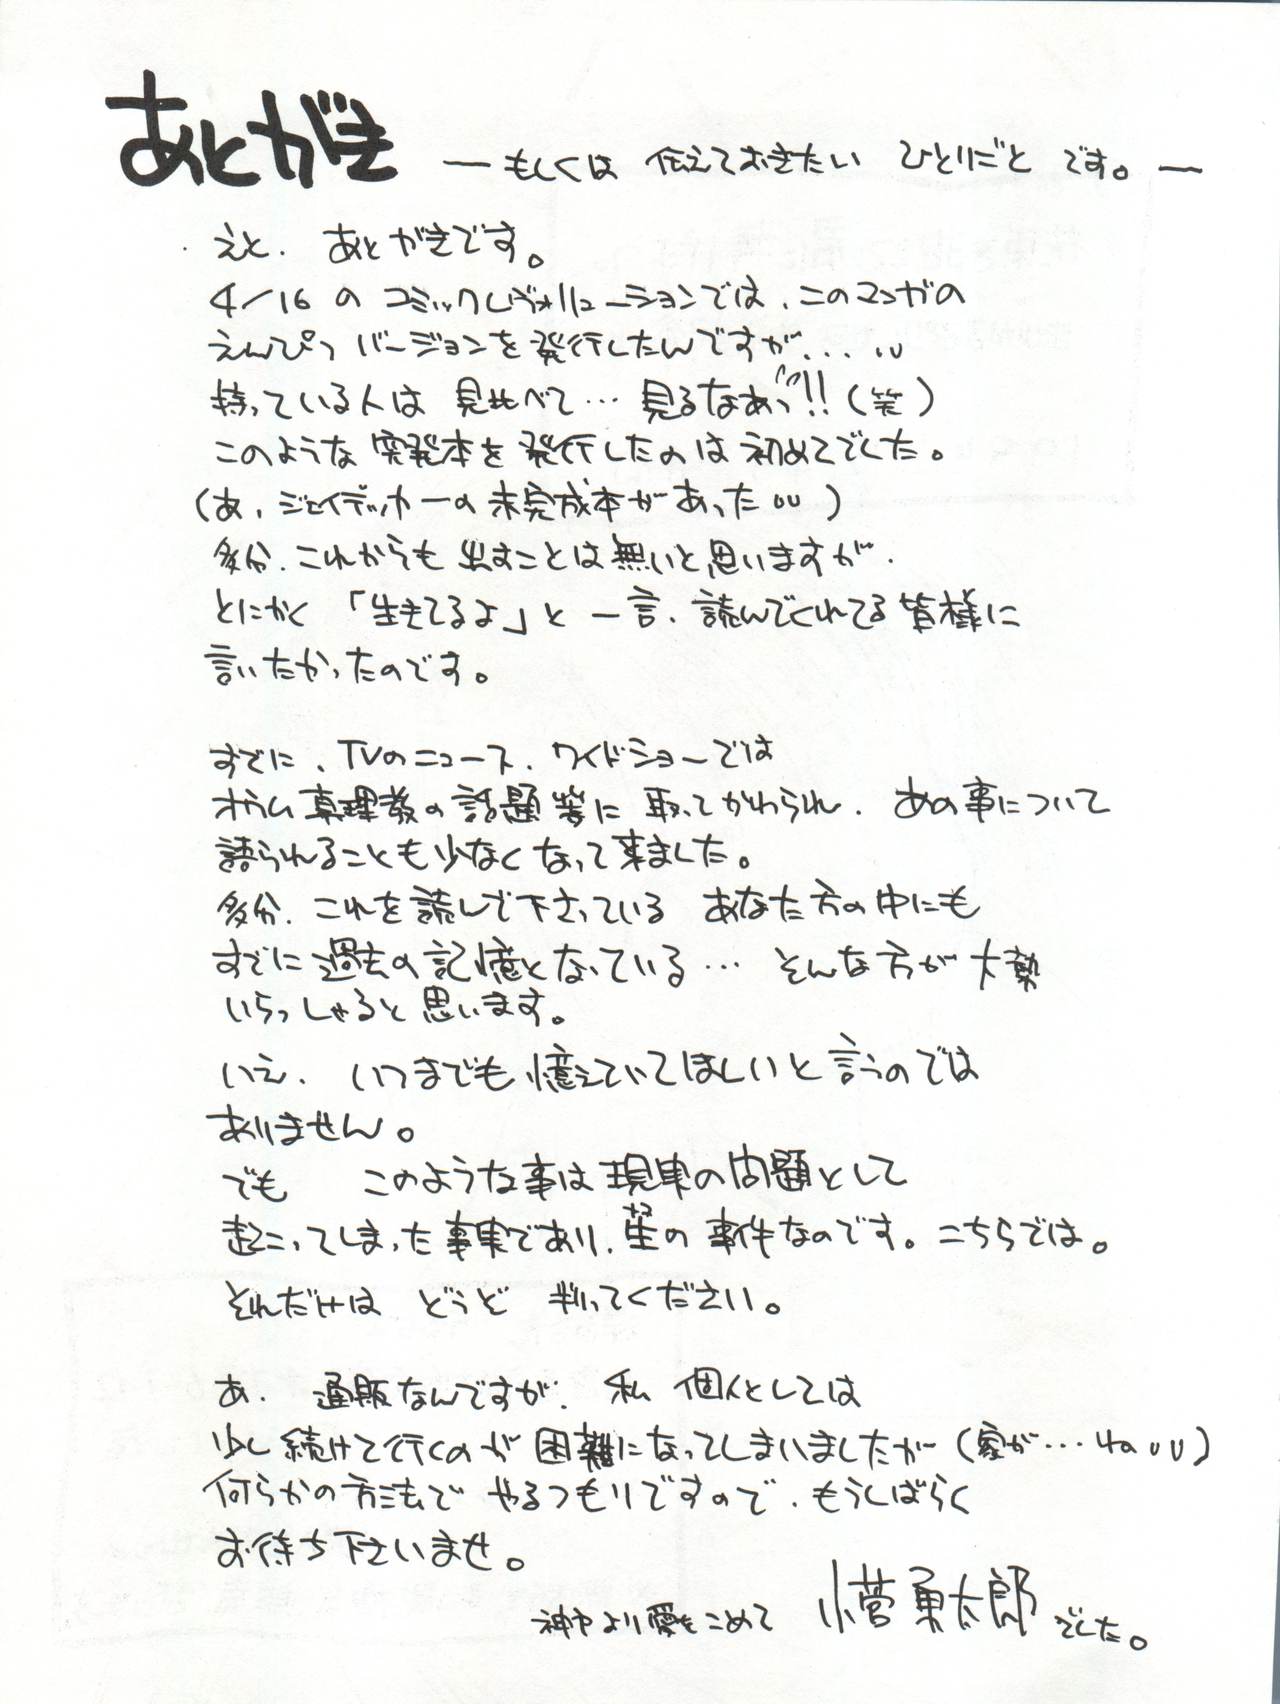 あとがき ―もしくは 伝えておきたい ひとりごと です。―
えと、あとがきです。
4/16 の コミックレヴォリューションでは、このマンガの
えんぴつ バージョンを発行したんですが...
持っている人は 見比べて… 見るなあっ!!(笑)
このような 突発本を発行したのは初めてでした。
(あ、ジェイデッカーの未完成本があった )
多分、これからも 出すことは無いと思いますが、
とにかく 「生きてるよ」と 一言、読んでくれてる皆様に
言いたかったのです。
すでに、TVのニュース、ワイドショーでは
オウム真理教の話題等に 取ってかわられ、あの事について
語られることも少なくなって来ました。
多分、これを読んで下さっている あなた方の中にも
すでに過去の記憶となっている… そんな方が大勢
いらっしゃると思います。
いえ、いつまでも憶えていてほしいと言うのでは
ありません。
でも このような事は現実の問題として
起こってしまった事実であり、 の 事件なのです。こちらでは。
それだけは どうぞ 判ってください。
あ、通販なんですが、私 個人としては
少し続けて行くのが困難になってしまいましたが(家が…ね )
何らかの方法で やるつもりですので、もうしばらく
お待ち下さいませ。
神戸より愛をこめて 小菅勇太郎 でした。